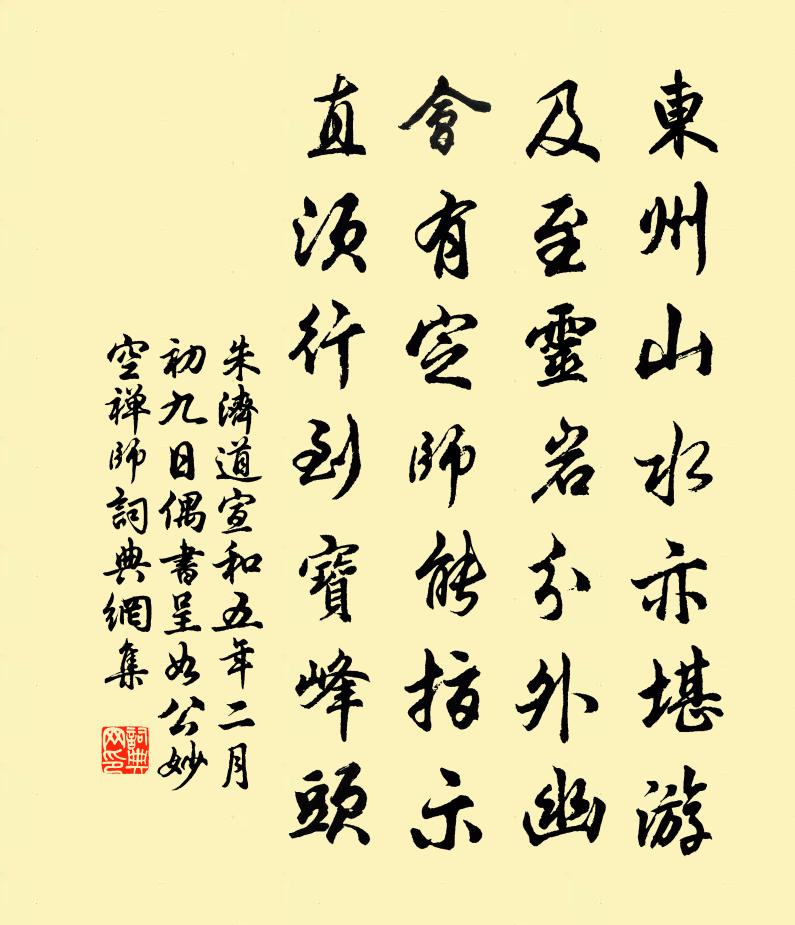 東州山水亦堪游
及至靈岩分外幽
會有定師能指示
直須行到寶峰頭
朱濟道宣和五年二月
初九日偶書呈如公妙
空禅師詞典網集
詞典網印